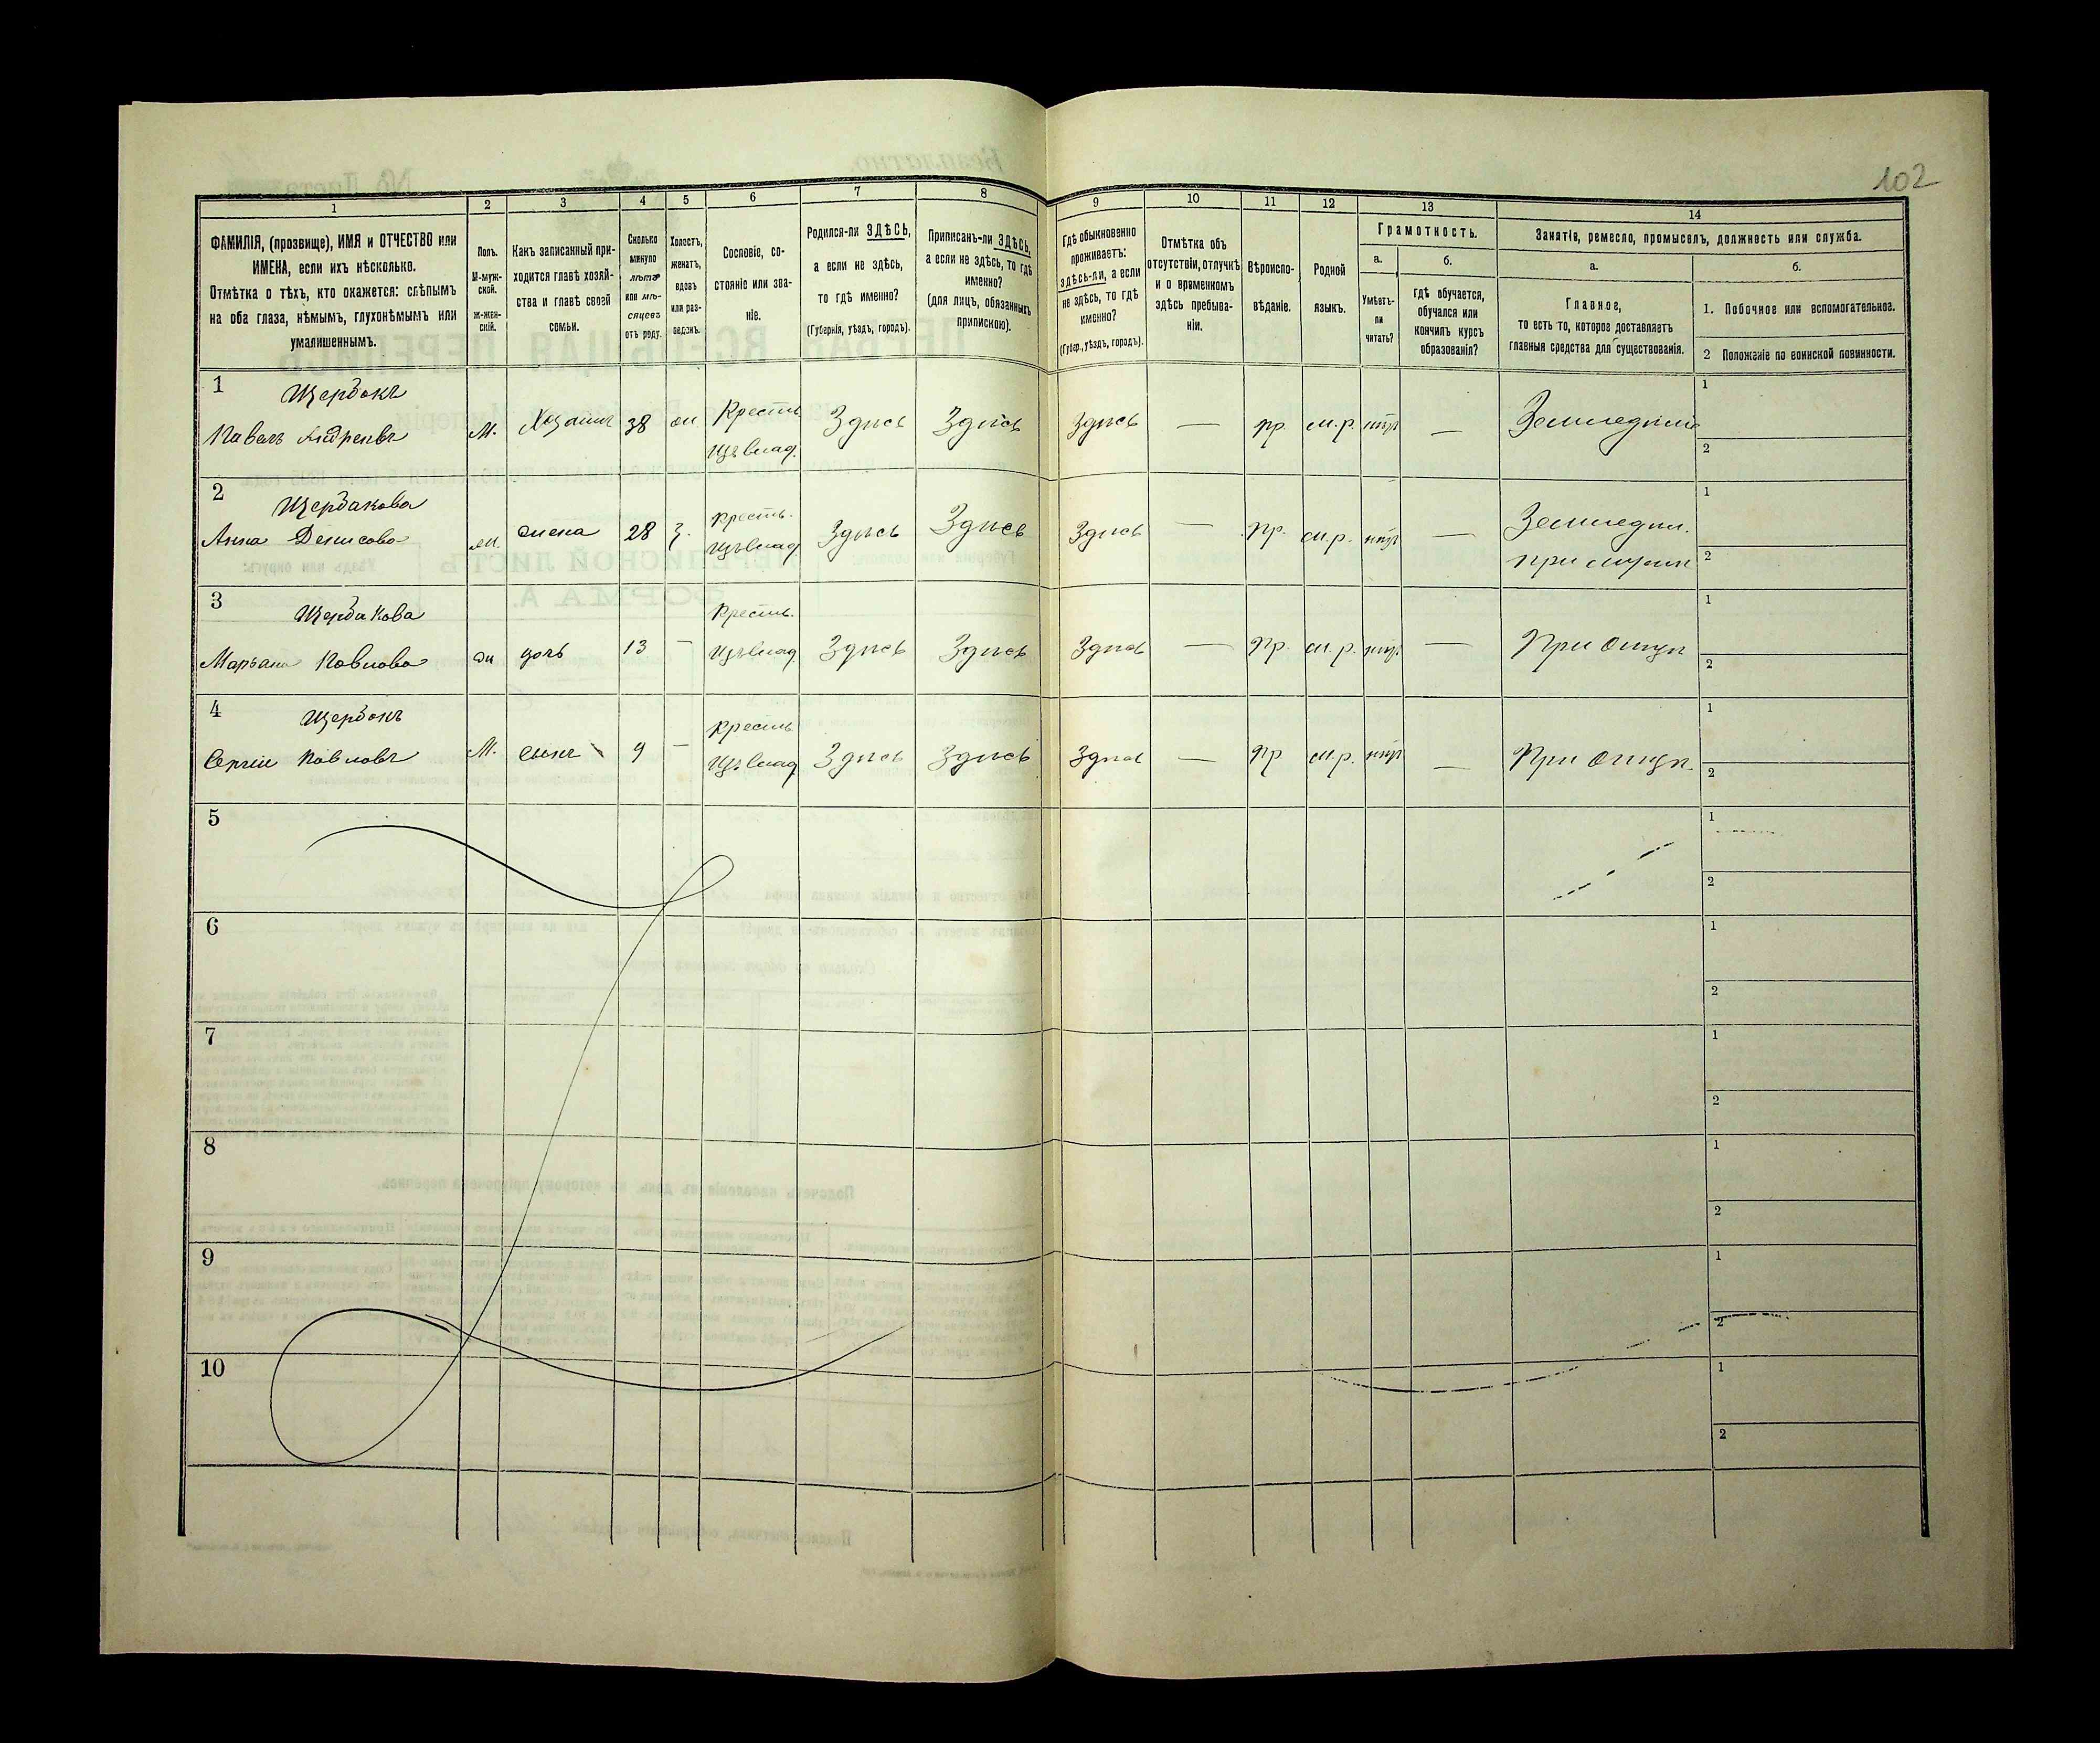 102
1
2
3
4
5
6
7
8
9
10
11
12
13
14
ФАМИЛІЯ, (прозвище), ИМЯ и ОТЧЕСТВО или
ИМЕНА, если ихъ нѣсколько.
Отмѣтка о тѣхъ, кто окажется: слѣпымъ
на оба глаза, нѣмымъ, глухонѣмымъ или
умалишеннымъ.
Полъ.
М-муж-
ской.
ж-жен-
скій.
Какъ записанный при-
ходится главѣ хозяй-
ства и главѣ своей
семьи.
Сколько
минуло
лѣтъ
или мѣ-
сяцевъ
отъ роду.
Холостъ,
женатъ,
вдовъ
или раз-
веденъ.
Сословіе, со-
стояніе или зва-
ніе.
Родился-ли ЗДѢСЬ,
а если не здѣсь,
то гдѣ именно?
(Губернія, уѣздъ, городъ).
Приписанъ-ли ЗДѢСЬ,
а если не здѣсь, то гдѣ
именно?
(для лицъ, обязанныхъ
припискою).
Гдѣ обыкновенно
проживаетъ:
здѣсь-ли, а если
не здѣсь, то гдѣ
именно?
(Губер., уѣздъ, городъ).
Отмѣтка объ
отсутствіи, отлучкѣ
и о временномъ
здѣсь пребыва-
ніи.
Вѣроиспо-
вѣданіе.
Родной
языкъ.
Грамотность.
а.
Умѣетъ-
ли
читать?
б.
гдѣ обучается,
обучался или
кончилъ курсъ
образованія?
Занятіе, ремесло, промыселъ, должность или служба.
а.
Главное,
то есть то, которое доставляетъ
главныя средства для существованія.
б.
1. Побочное или вспомогательное.
2 Положеніе по воинской повинности.
1 Щербакъ
Павелъ Андреевъ М. Хозяинъ 38 жн Крестьян. Здѣсь Здѣсь Здѣсь — пр. м.р. — 1
2
2 Щербакова
Анна Денисова жена 28 З. Крестьян. Здѣсь Здѣсь Здѣсь — пр. м.р. — Земледѣл. 1
при мужѣ 2
3 Щербакова Крестьян. 1
Павлова жн дочь 13 — Здѣсь Здѣсь Здѣсь — пр. м.р. — При отцѣ 2
4 Щербакъ Крестьян. 1
Сергѣй Павловъ М. сынъ 9 — Здѣсь Здѣсь Здѣсь — пр м.р. — При отцѣ 2
5 1
2
6 1
2
7 1
2
8 1
2
9 1
2
10 1
2